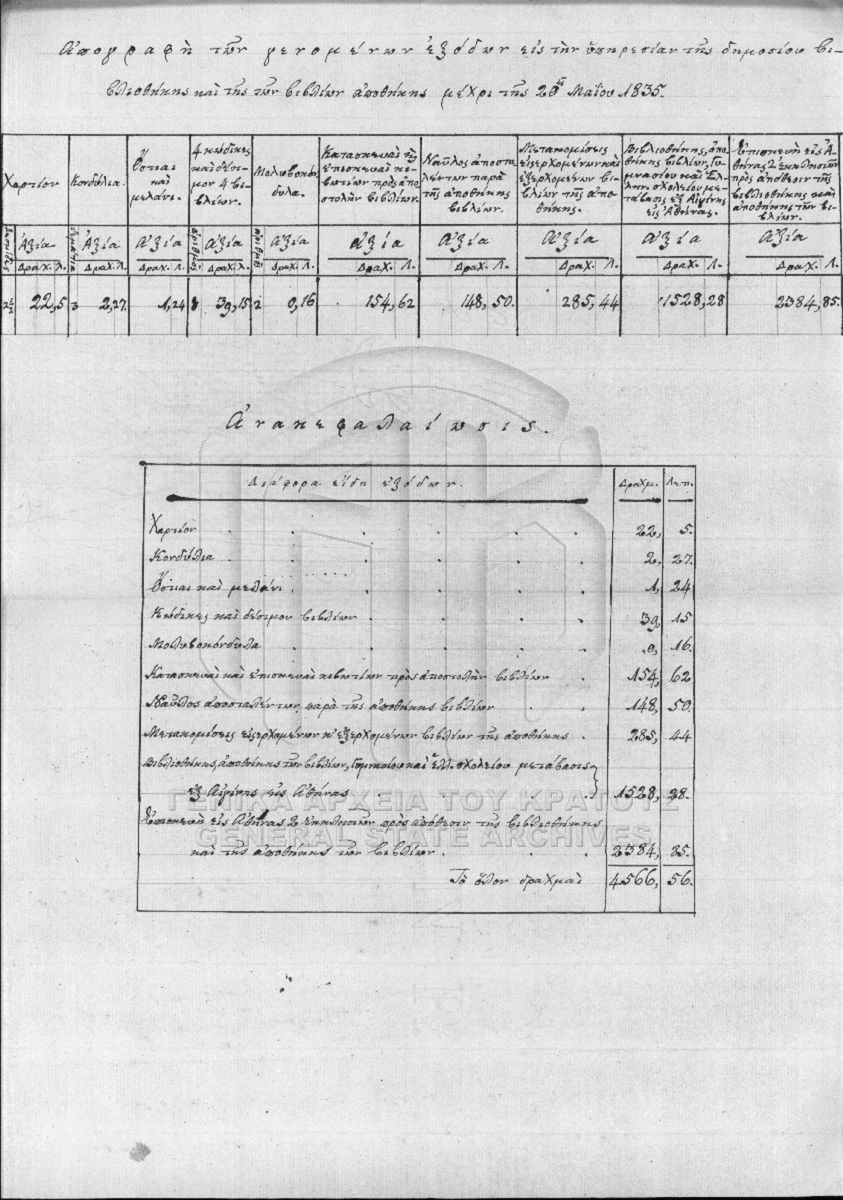 Ἀπογραφὴ τῶν γενομένων ἐξόδων εἰς τὴν ὑπηρεσίαν τῆς δημοσίου βι-
βλιοθήκης καὶ τῆς τῶν βιβλίων ἀποθήκης μέχρι τῆς 20 Μαΐου 1835.
Χαρτίον
Κονδύλια.
Ὄστιαι καὶ μελάνι.
4 κώδικες καὶ δέσιμον 4 βιβλίων.
Μολυβοκόνδυλα.
Κατασκευαὶ καὶ ἐπισκευαὶ κιβωτίων πρὸς ἀποστολὴν βιβλίων.
Ναῦλος ἀποσταλέντων παρὰ τῆς ἀποθήκης βιβλίων.
Μετακομίσεις εἰσερχομένων καὶ ἐξερχομένων βιβλίων τῆς ἀποθήκης.
Βιβλιοθήκης, ἀποθήκης βιβλίων, Γυμνασίου καὶ Ἑλλην. σχολείου μετάβασις ἐξ Αἰγίνης εἰς Ἀθήνας.
Ἐπισκευὴ εἰς Ἀθήνας 2 ἐκκλησιῶν πρὸς ἀπόθεσιν τῆς βιβλιοθήκης καὶ ἀποθήκης τῶν βιβλίων.
Ἀξία Ἀξία Ἀξία Ἀξία Ἀξία Ἀξία Ἀξία Ἀξία Ἀξία Ἀξία
Δραχ. Λ. Δραχ. Λ. Δραχ. Λ. Δραχ. Λ. Δραχ. Λ. Δραχ. Λ. Δραχ. Λ. Δραχ. Λ. Δραχ. Λ. Δραχ. Λ.
2½ 22,5 3 2,27. 1,24 39,15 2 0,16 154,62 148,50. 285,44 1528,28 2384,85.
Ἀνακεφαλαίωσις.
Διάφορα εἴδη ἐξόδων. Δραχμ. Λεπ.
Χαρτίον 22, 5.
Κονδύλια 2, 27.
Ὄστιαι καὶ μελάνι 1, 24
Κώδικες καὶ δέσιμον βιβλίων 39, 15
Μολυβοκόνδυλα 0, 16.
Κατασκευαὶ καὶ ἐπισκευαὶ κιβωτίων πρὸς ἀποστολὴν βιβλίων 154, 62
Ναῦλος ἀποσταλέντων παρὰ τῆς ἀποθήκης βιβλίων 148, 50.
Μετακομίσεις εἰσερχομένων κ' ἐξερχομένων βιβλίων τῆς ἀποθήκης 285, 44
Βιβλιοθήκης, ἀποθήκης τῶν βιβλίων, Γυμνασίου καὶ Ἑλλ. σχολείου μετάβασις
ἐξ Αἰγίνης εἰς Ἀθήνας 1528, 28.
Ἐπισκευὴ εἰς Ἀθήνας 2 ἐκκλησιῶν πρὸς ἀπόθεσιν τῆς βιβλιοθήκης
καὶ τῆς ἀποθήκης τῶν βιβλίων 2384, 85.
Τὸ ὅλον δραχμαὶ 4566, 56.
ΓΕΝΙΚΑ ΑΡΧΕΙΑ ΤΟΥ ΚΡΑΤΟΥΣ
GENERAL STATE ARCHIVES